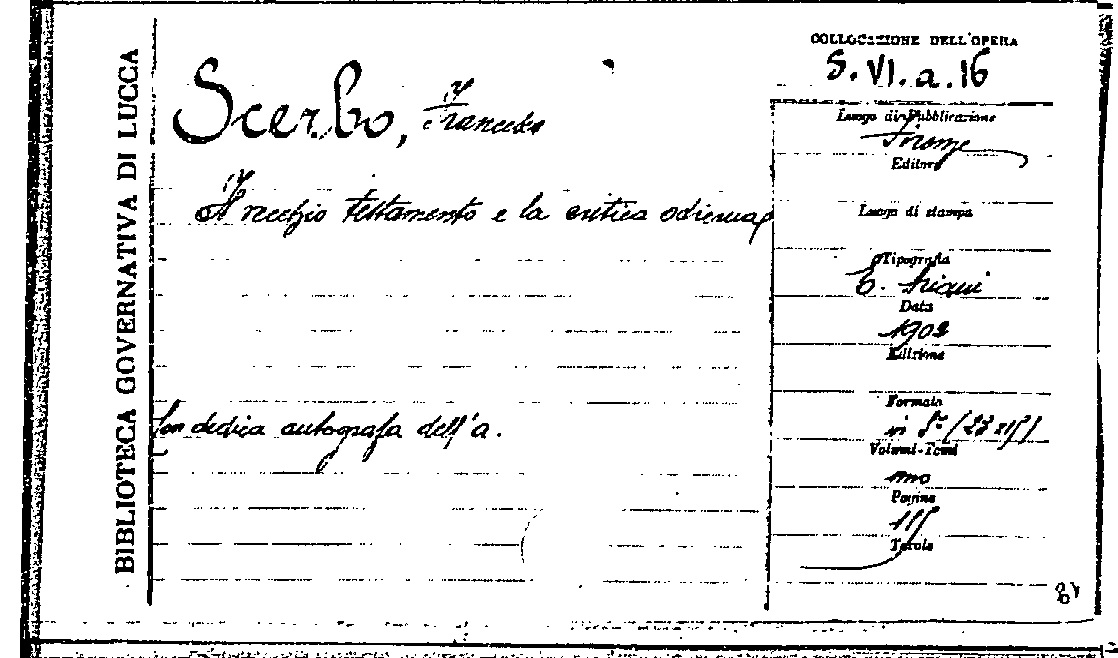 BIBLIOTECA GOVERNATIVA DI LUCCA
Scerbo, Francesco
Il vecchio testamento e la critica odierna
Con dedica autografa dell'a.
COLLOCAZIONE DELL'OPERA
S. VI. a. 16
Luogo di Pubblicazione
Firenze
Editore
Luogo di stampa
Tipografia
E. Ariani
Data
1902
Edizione
Formato
in 8° (23x15)
Volumi-Tomi
uno
Pagine
115
Tavole